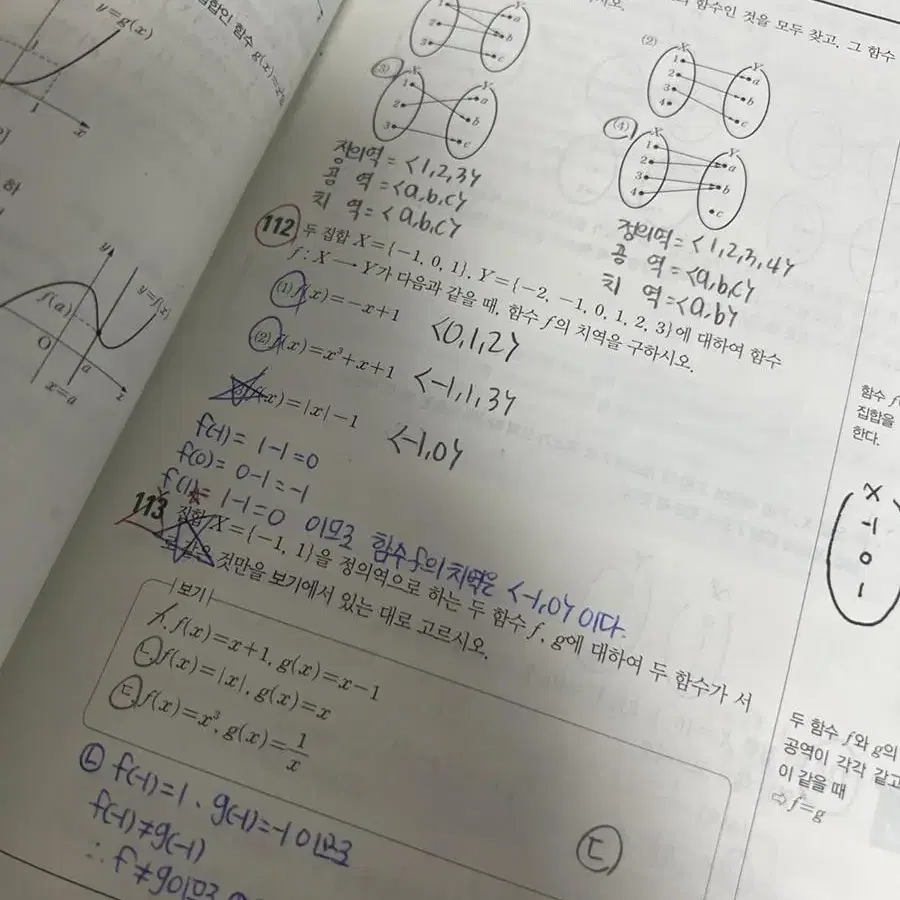 y=g(x)
1
1
x
함수인 것을 모두 찾고, 그 함수
a
b
c
(2)
X
Y
1
2
3
4
a
b
c
(3)
X
Y
1
2
3
a
b
c
(4)
X
Y
1
2
3
4
a
b
c
정의역 = {1,2,3}
공 역 = {a,b,c}
치 역 = {a,b,c}
정의역 = {1,2,3,4}
공 역 = {a,b,c}
치 역 = {a,b}
112 두 집합 X={-1, 0, 1}, Y={-2, -1, 0, 1, 2, 3}에 대하여 함수
f : X → Y가 다음과 같을 때, 함수 f의 치역을 구하시오.
(1) f(x)=-x+1 {0,1,2}
(2) f(x)=x³+x+1 {-1,1,3}
(3) f(x)=|x|-1 {-1,0}
f(-1)= 1-1=0
f(0)= 0-1=-1
f(1)= 1-1=0 이므로 함수 f의 치역은 {-1,0} 이다.
113 집합 X={-1, 1}을 정의역으로 하는 두 함수 f, g에 대하여 두 함수가 서
로 같은 것만을 보기에서 있는 대로 고르시오.
보기
ㄱ. f(x)=x+1, g(x)=x-1
ㄴ. f(x)=|x|, g(x)=x
ㄷ. f(x)=x³, g(x)=1/x
ㄷ
ㄴ f(-1)=1, g(-1)=-1 이므로
f(-1)≠g(-1)
∴ f≠g이므로
y
y=f(x)
f(a)
O
a
x
x=a
함수 f
집합을
한다.
X
-1
0
1
두 함수 f와 g의
공역이 각각 같고
이 같을 때
⇨ f=g